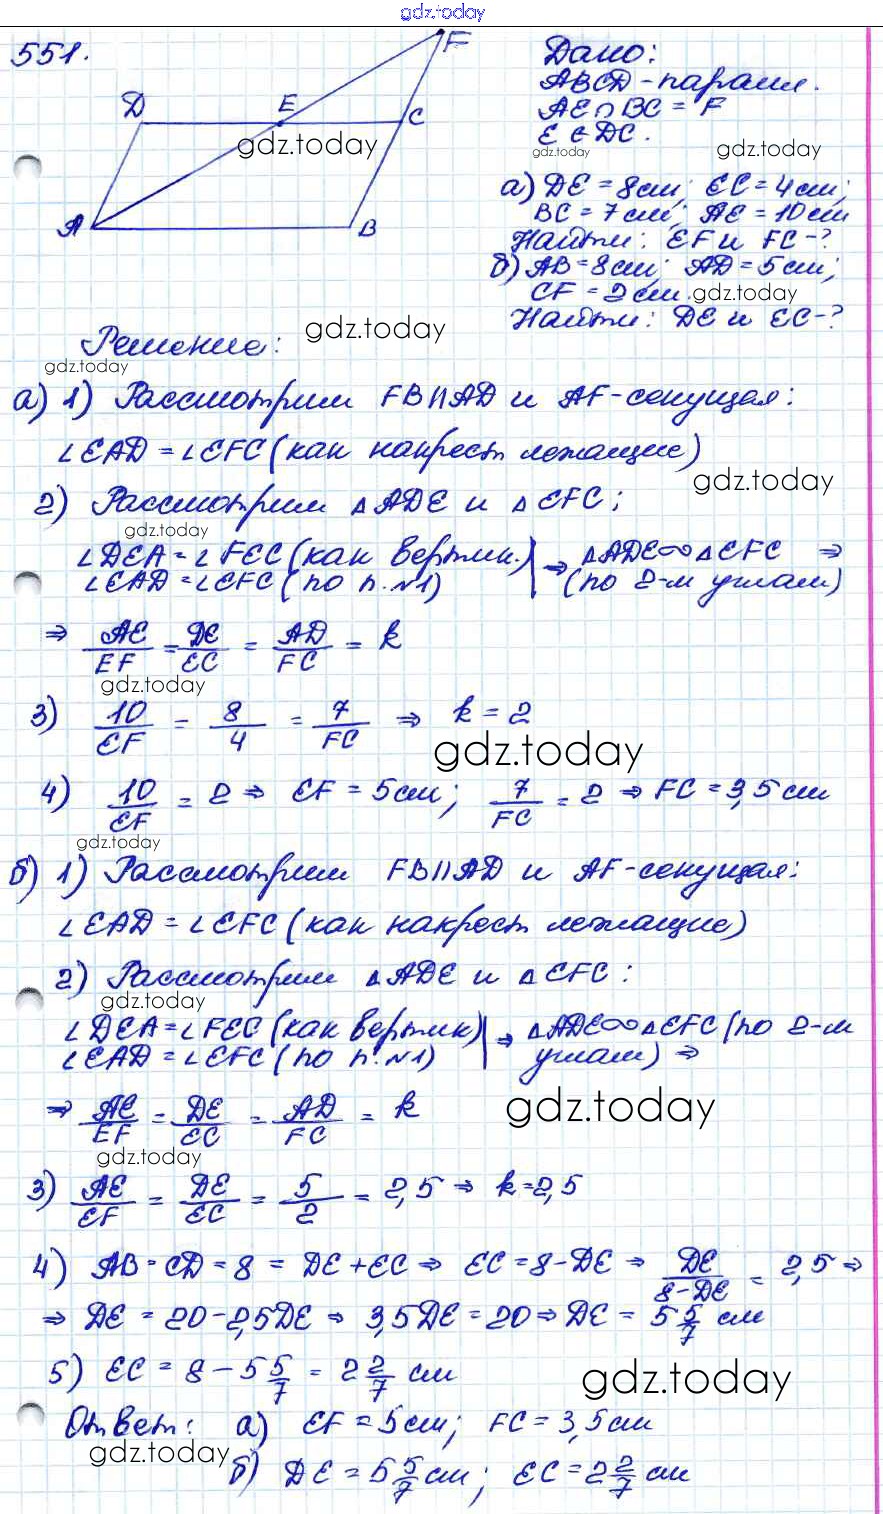 gdz.today
551.
F
D E C
A B
gdz.today
Дано:
ABCD - паралл.
AE ∩ BC = F
E ∈ DC.
gdz.today gdz.today
а) DE = 8 см; EC = 4 см;
BC = 7 см; AE = 10 см
Найти: EF и FC - ?
б) AB = 8 см; AD = 5 см;
CF = 2 см. gdz.today
Найти: DE и EC - ?
Решение: gdz.today
gdz.today
а) 1) Рассмотрим FB || AD и AF - секущая:
∠EAD = ∠EFC (как накрест лежащие)
gdz.today
2) Рассмотрим △ADE и △EFC;
gdz.today
∠DEA = ∠FEC (как вертик.) | ⇒ △ADE ∞ △EFC ⇒
∠EAD = ∠EFC (по п. №1) | (по 2-м углам)
⇒ AE/EF = DE/EC = AD/FC = k
gdz.today
3) 10/EF = 8/4 = 7/FC ⇒ k = 2
gdz.today
4) 10/EF = 2 ⇒ EF = 5 см; 7/FC = 2 ⇒ FC = 3,5 см
gdz.today
б) 1) Рассмотрим FB || AD и AF - секущая:
∠EAD = ∠EFC (как накрест лежащие)
2) Рассмотрим △ADE и △EFC:
gdz.today
∠DEA = ∠FEC (как вертик) | ⇒ △ADE ∞ △EFC (по 2-м
∠EAD = ∠EFC (по п. №1) | углам) ⇒
⇒ AE/EF = DE/EC = AD/FC = k
gdz.today
gdz.today
3) AE/EF = DE/EC = 5/2 = 2,5 ⇒ k = 2,5
4) AB = CD = 8 = DE + EC ⇒ EC = 8 - DE ⇒ DE/8-DE = 2,5 ⇒
⇒ DE = 20 - 2,5DE ⇒ 3,5DE = 20 ⇒ DE = 5 5/7 см
5) EC = 8 - 5 5/7 = 2 2/7 см
gdz.today
Ответ: а) EF = 5 см; FC = 3,5 см
gdz.today
б) DE = 5 5/7 см; EC = 2 2/7 см